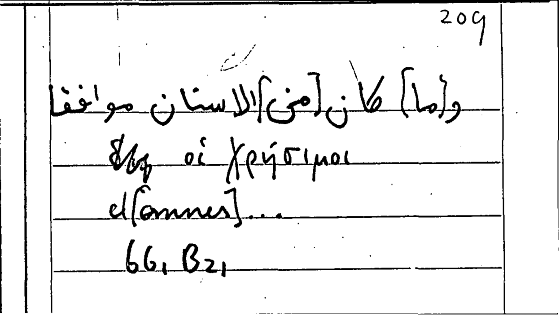 209
و[ما] كان [من] الاسنان موافقا
οἱ χρήσιμοι
d[omnes]...
66, B2,